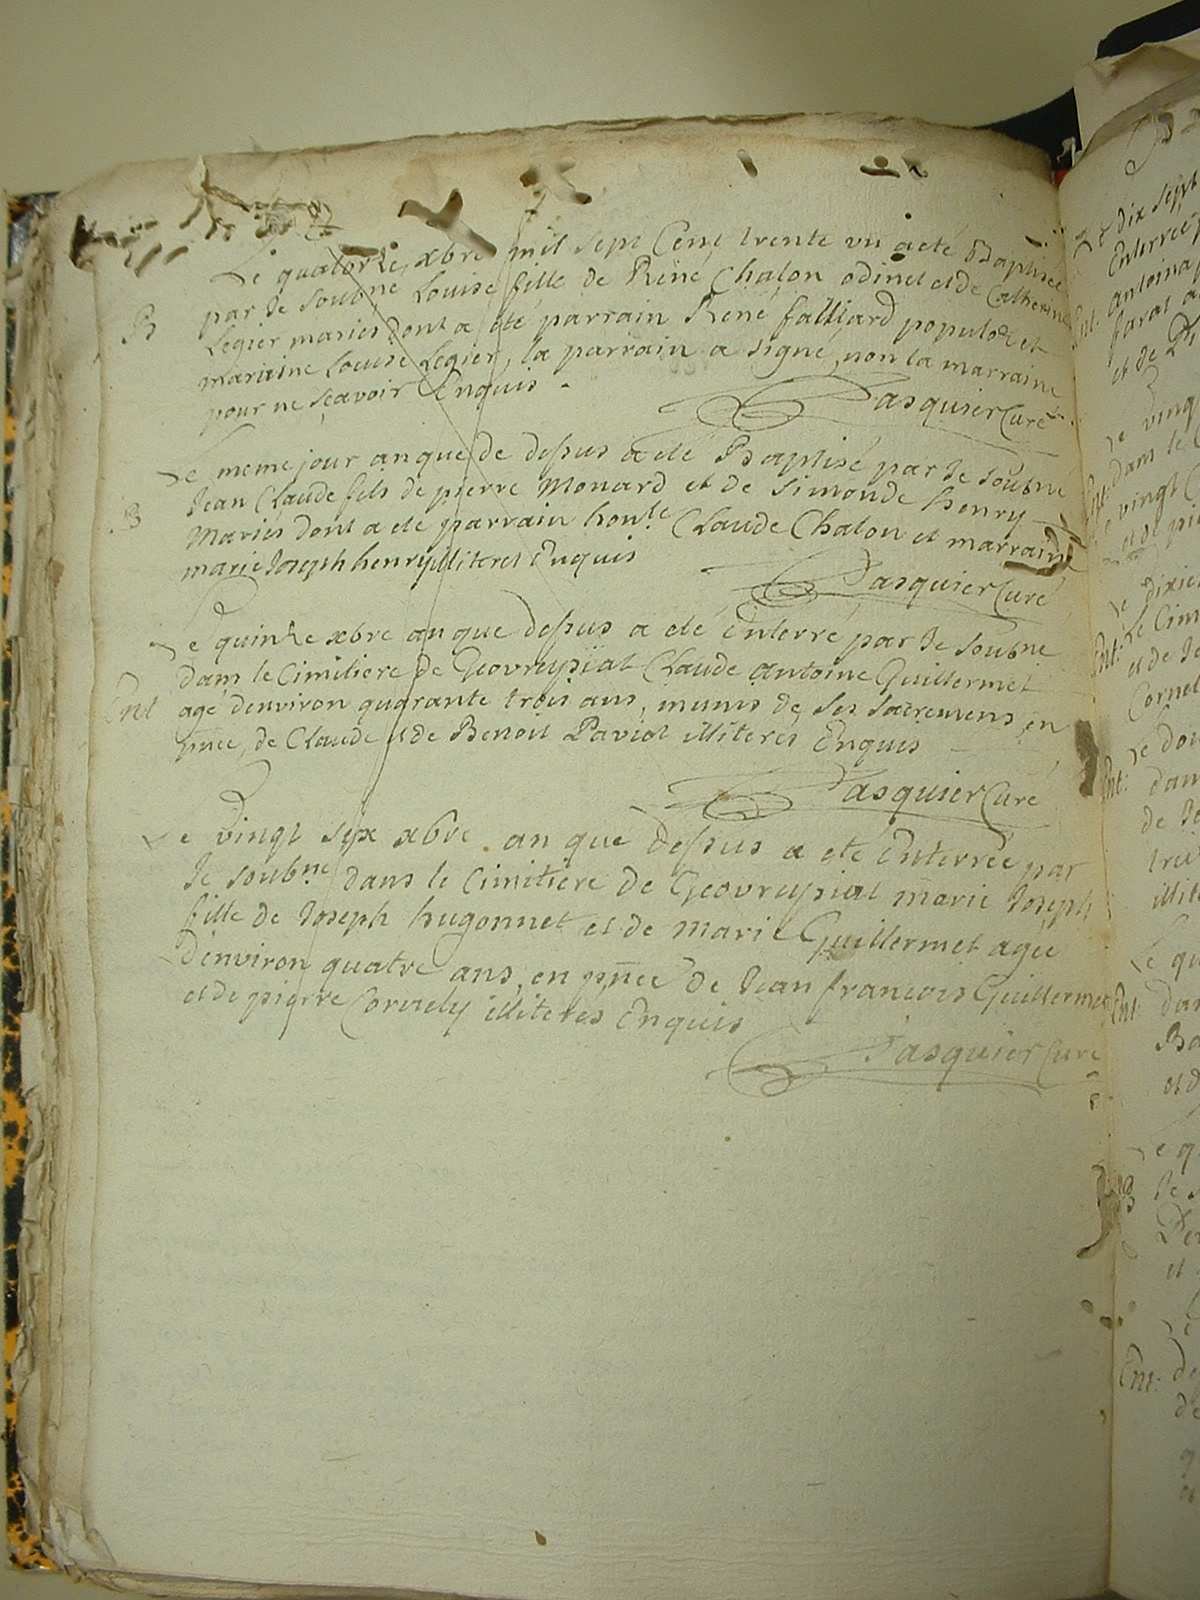 Le quatorze xbre mil sept Cent trente un a eté Baptisée
B par Je soubne Louise fille de René Chalon odinet et de Catherine
Legier mariés dont a eté parrain René falliard et
marraine Louise Legier, la parrain a signé, non la marraine
pour ne sçavoir Enquis.
Pasquier Curé
Le meme jour an que de dessus a eté Baptisé par Je soubne
B Jean Claude fils de pierre Monard et de Simonde henry
Mariés dont a eté parrain honle Claude Chalon et marraine
marie Joseph henry illiteres Enquis
Pasquier Curé
Le quinze xbre an que dessus a eté Enterré par Je soubne
dans le Cimitiere de Geovreysiat Claude antoine Guillermet
Ent agé d'environ quarante trois ans, munis de ses sacremens, en
pnce, de Claude et de Benoit Paviot illiteres Enquis
Pasquier Curé
Le vingt syx xbre an que dessus a eté Enterrée par
Je soubne dans le Cimitiere de Geovreysiat marie Joseph
fille de Joseph hugonnet et de marie Guillermet agée
d'environ quatre ans, en pnce de Jean francois Guillermet
et de pierre illiteres Enquis
Pasquier Curé
Le dix sept
Enterrée
Ent. antoina
farat
et de
Le vingt
Ent: dans le
vingt
et de
Le dixie
Ent: Le Cim
et de Je
Cornel
Le dou
Ent: dans
de Jo
illit
Le qu
Ent: dan
Ba
et d
Le q
B Je
et
Ent: de